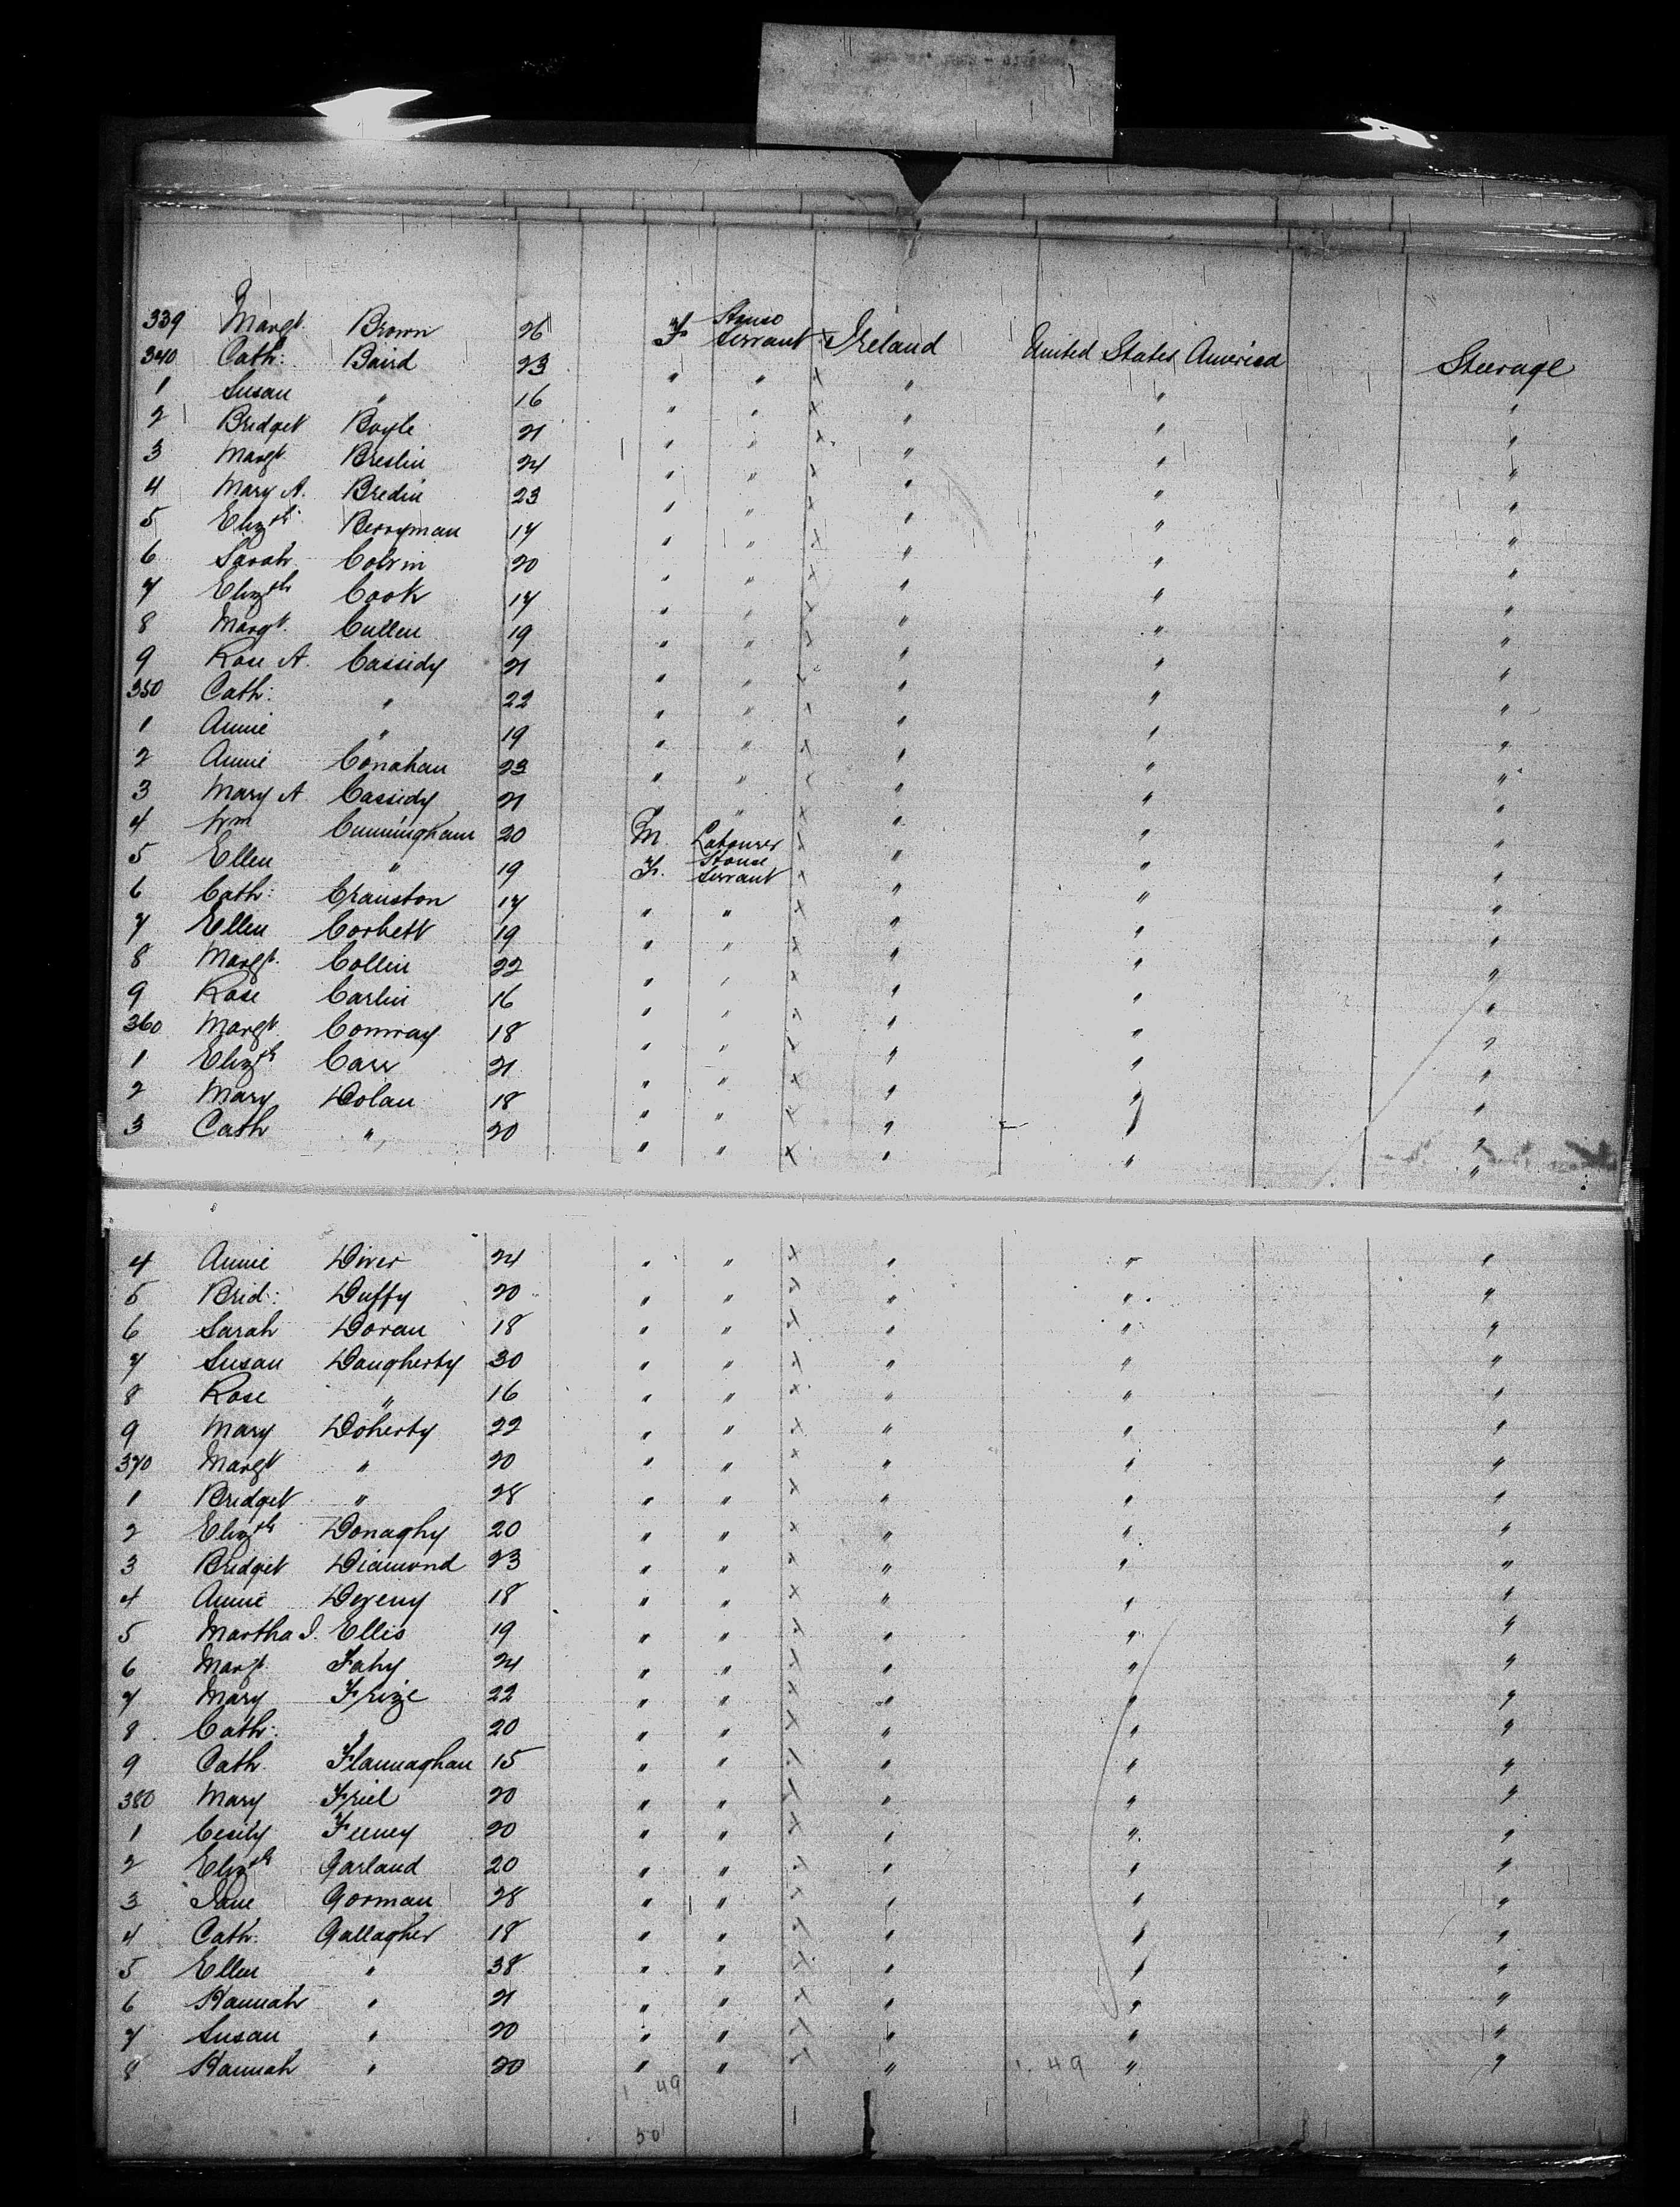 339 Margt. Brown 26 F House Servant × Ireland United States America Steerage
340 Cath: Baird 23 " " × " " "
1 Susan " 16 " " × " " "
2 Bridget Boyle 21 " " × " " "
3 Margt. Breslin 24 " " × " " "
4 Mary A. Bredin 23 " " × " " "
5 Elizth Berryman 17 " " × " " "
6 Sarah Colvin 20 " " × " " "
7 Elizth Cook 17 " " × " " "
8 Margt. Cullen 19 " " × " " "
9 Rose A. Cassidy 21 " " × " " "
350 Cath: " 22 " " × " " "
1 Annie " 19 " " × " " "
2 Annie Conahan 23 " " × " " "
3 Mary A Cassidy 21 " × " " "
4 Wm Cunningham 20 M Labourer × " " "
5 Ellen " 19 F. House Servant × " " "
6 Cath: Cranston 17 " " × " " "
7 Ellen Corbett 19 " " × " " "
8 Margt. Collin 22 " " × " " "
9 Rose Carlin 16 " " × " " "
360 Margt. Conway 18 " " × " " "
1 Elizth Carr 21 " " × " " "
2 Mary Dolan 18 " " × " " "
3 Cath " 20 " " × " " "
4 Annie Diver 24 " " × " " "
5 Brid: Duffy 20 " " × " " "
6 Sarah Doran 18 " " × " " "
7 Susan Daugherty 30 " " × " " "
8 Rose " 16 " " × " " "
9 Mary Doherty 22 " " × " " "
370 Margt " 20 " " × " " "
1 Bridget " 28 " " × " " "
2 Elizth Donaghy 20 " " × " " "
3 Bridget Diamond 23 " " × " " "
4 Annie Deveny 18 " " × " " "
5 Martha J. Ellis 19 " " × " " "
6 Margt. Fahy 24 " " × " " "
7 Mary Frize 22 " " × " " "
8 Cath: " 20 " " × " " "
9 Cath. Flannaghan 15 " " × " " "
380 Mary Friel 20 " " × " " "
1 Cecily Feeney 20 " " × " " "
2 Elizth Garland 20 " " × " " "
3 Jane Gorman 28 " " × " " "
4 Cath. Gallagher 18 " " × " " "
5 Ellen " 38 " " × " " "
6 Hannah " 21 " " × " " "
7 Susan " 20 " " × " " "
8 Hannah " 20 " " × " 1. 49 " "
1 49
50